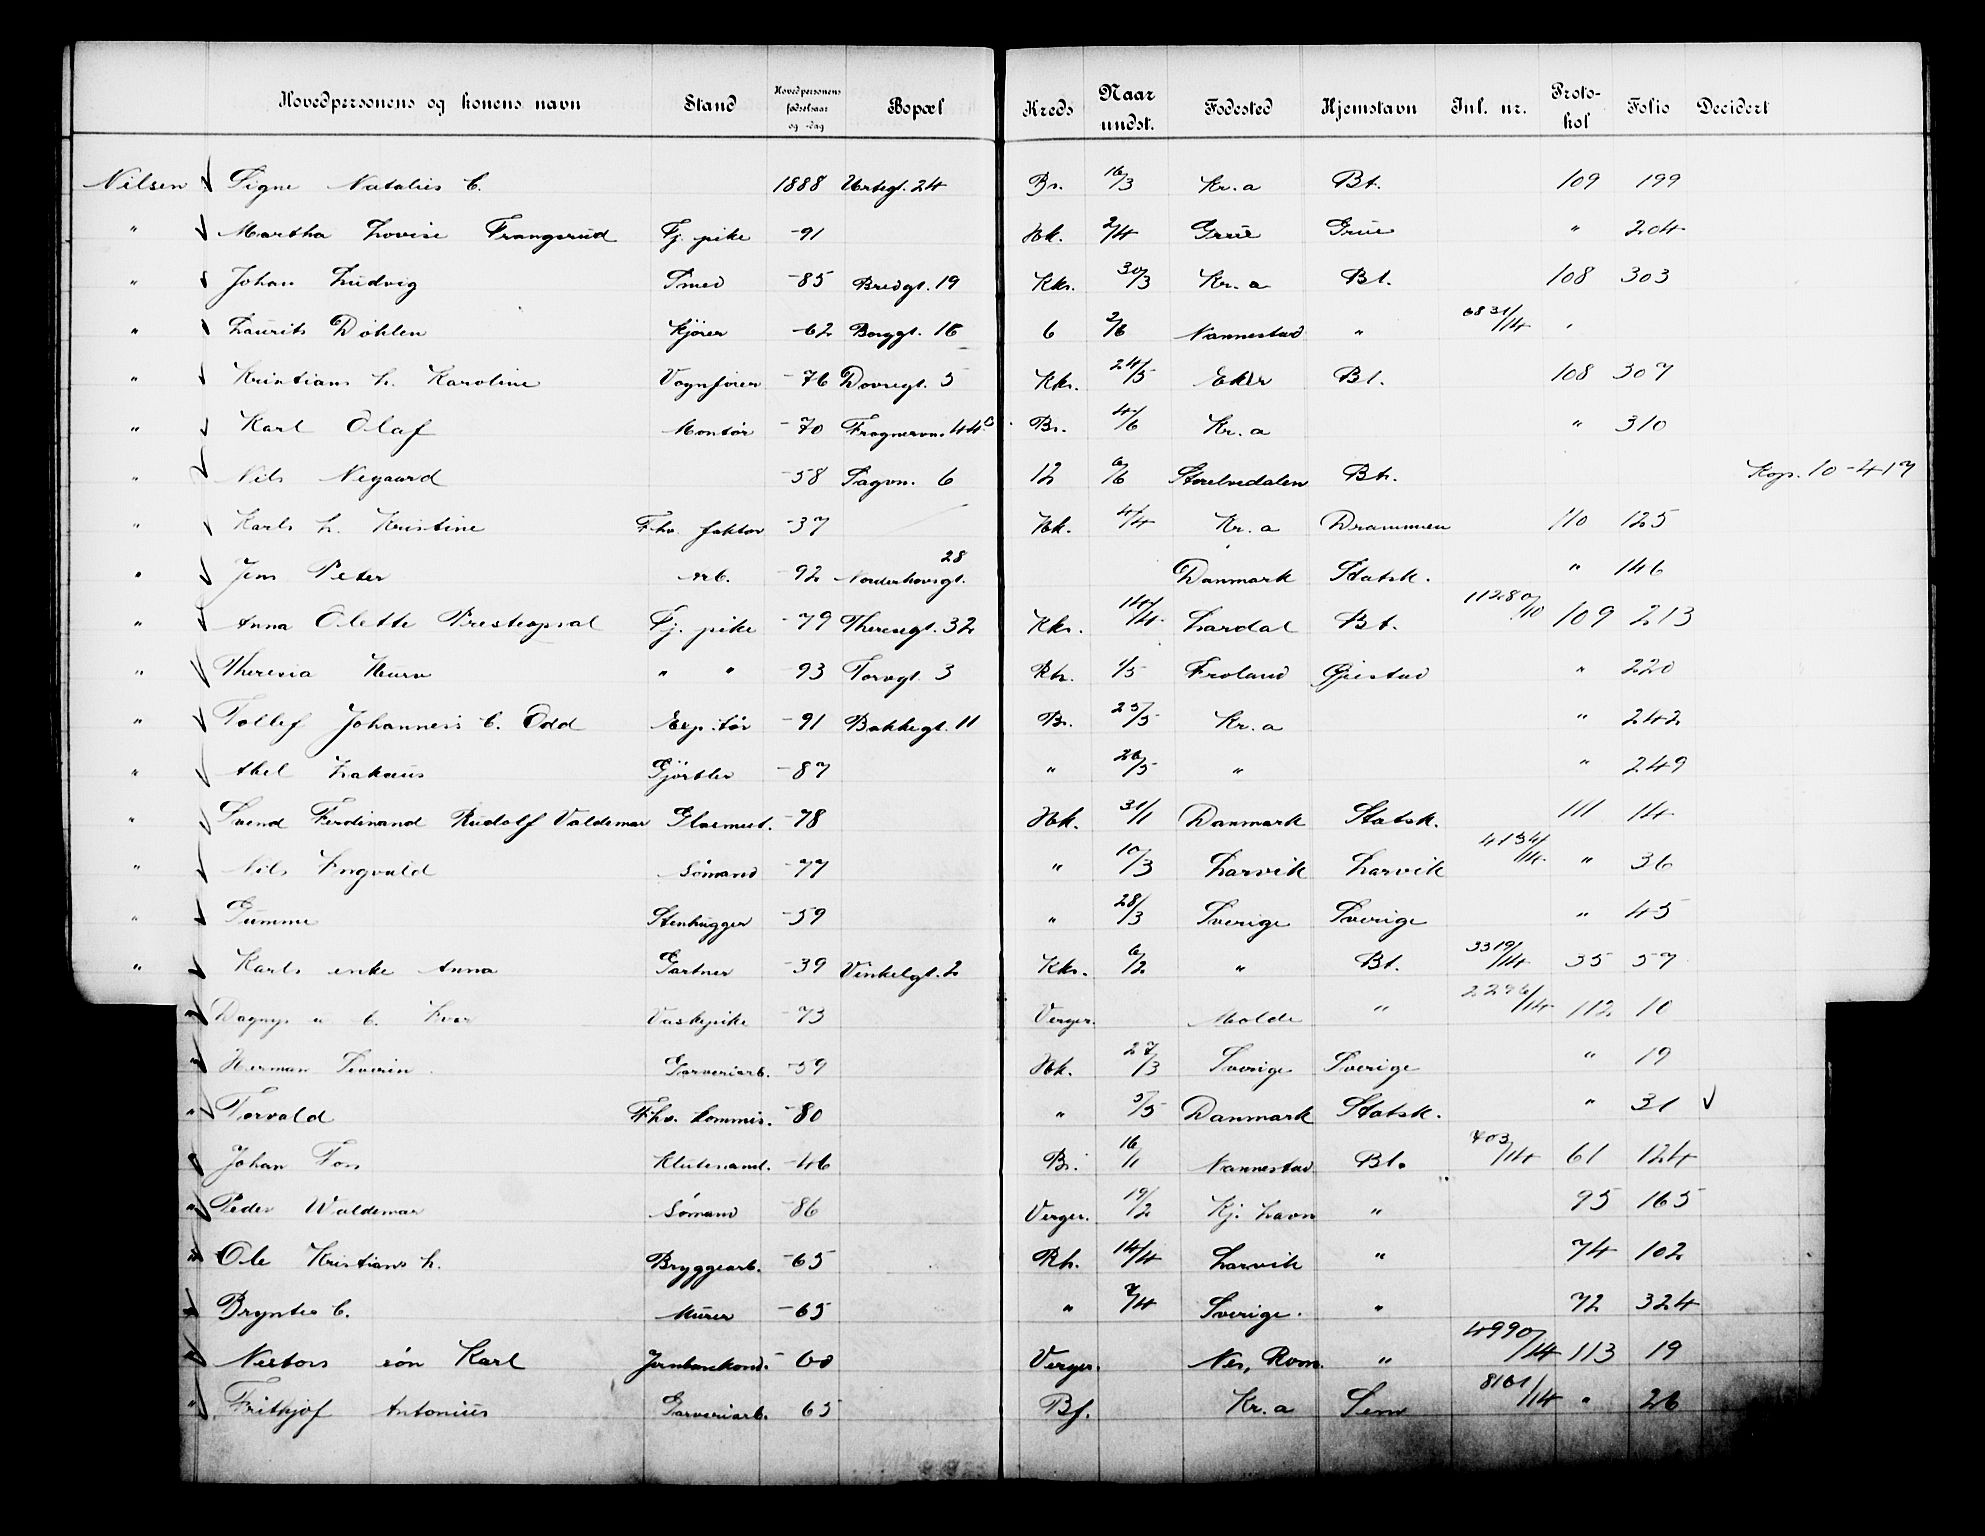 Hovedpersonens og konens navn Stand Hovedpersonens fødselsaar og -dag Bopæl Kreds Naar undst. Fødested Hjemstavn Inl. nr. Protokol Folio Decidert
Nilsen Signe Natalies b. 1888 Urtegt. 24 Br. 16/3 Kr.a Bt. 109 199
" Martha Lovise Frangsrud Tj. pike -91 Hk. 2/4 Grue Grue " 204
" Johan Ludvig Smed -85 Bredgt. 19 Kks. 30/3 Kr.a Bt. 108 303
" Laurits Døhlen Kjører -62 Borggt. 16 6 2/6 Nannestad " 6831/14 "
" Kristians h. Karoline Vognfører -76 Dovregt. 5 Kks. 24/5 Eker Bt. 108 307
" Karl Olaf Montør -70 Frognervn. 44c Br. 4/6 Kr.a " 310
" Nils Negaard -58 Sagvn. 6 12 6/6 Storelvedalen Bt. Kop. 10-417
" Karls h. Kristine Fhv. faktor -37 Hk. 4/4 Kr.a Drammen 110 125
" Jens Peter Arb. -92 Norderhovsgt. 28 Danmark Statsk. " 146
" Anna Olette Presteopsal Tj. pike -79 Theresegt. 32 Kks. 14/4 Lardal Bt. 11280/10 109 213
" Theresia Hurv " " -93 Torvgt. 3 Rh. 1/5 Froland Øiestad " 220
" Tollef Johannes's b. Odd Exp.tør -91 Bakkegt. 11 Br. 25/5 Kr.a " 242
" Axel Zakæus Gjørtler -87 " 26/5 " " 249
" Svend Ferdinand Rudolf Valdemar Glasmest. -78 Hk. 31/1 Danmark Statsk. 111 14
" Nils Ingvald Sömand -77 " 10/3 Larvik Larvik 4134/14 " 36
" Gumme Stenhugger -59 " 28/3 Sverige Sverige " 45
" Karls enke Anna Gartner -39 Vinkelgt. 2 Kks. 6/2 " Bt. 3319/14 35 57
" Dagny u. b. Iver Vaskepike -73 Verger. Molde " 2296/14 112 10
" Herman Severin Garveriarb. -59 Hk. 27/3 Sverige Sverige " 19
" Torvald Fhv. kommis. -80 " 5/5 Danmark Statsk. " 31
" Johan Fos Klutesaml. -46 Br. 16/1 Nannestad Bt. 703/14 61 124
" Peder Waldemar Sömand -86 Verger. 19/2 Kj. havn " 95 165
" Ole Kristians h. Bryggearb. -65 Rh. 14/4 Larvik " 74 102
" Bryntes b. Murer -65 " 7/4 Sverige. " 72 324
" Nestors sön Karl Jernbanekond. -60 Verger. Nes, Rom. " 4990/14 113 19
" Fritkjof Antonius Garveriarb. 65 Bf. Kr.a Sem 8161/14 " 26